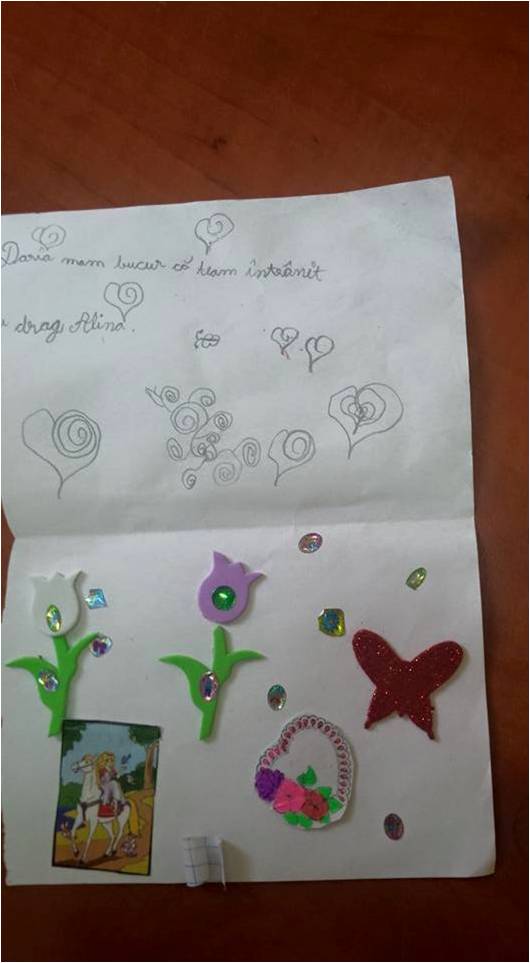 Daria mam bucur că team întâânit
drag Alina.